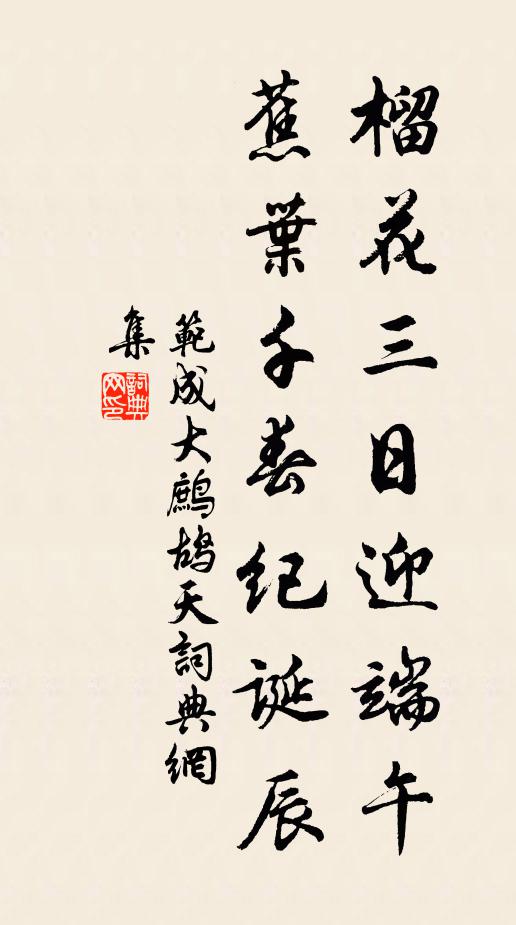 榴花三日迎端午
蕉葉千春紀誕辰
範成大鷓鴣天詞典網
集
詞典
网印